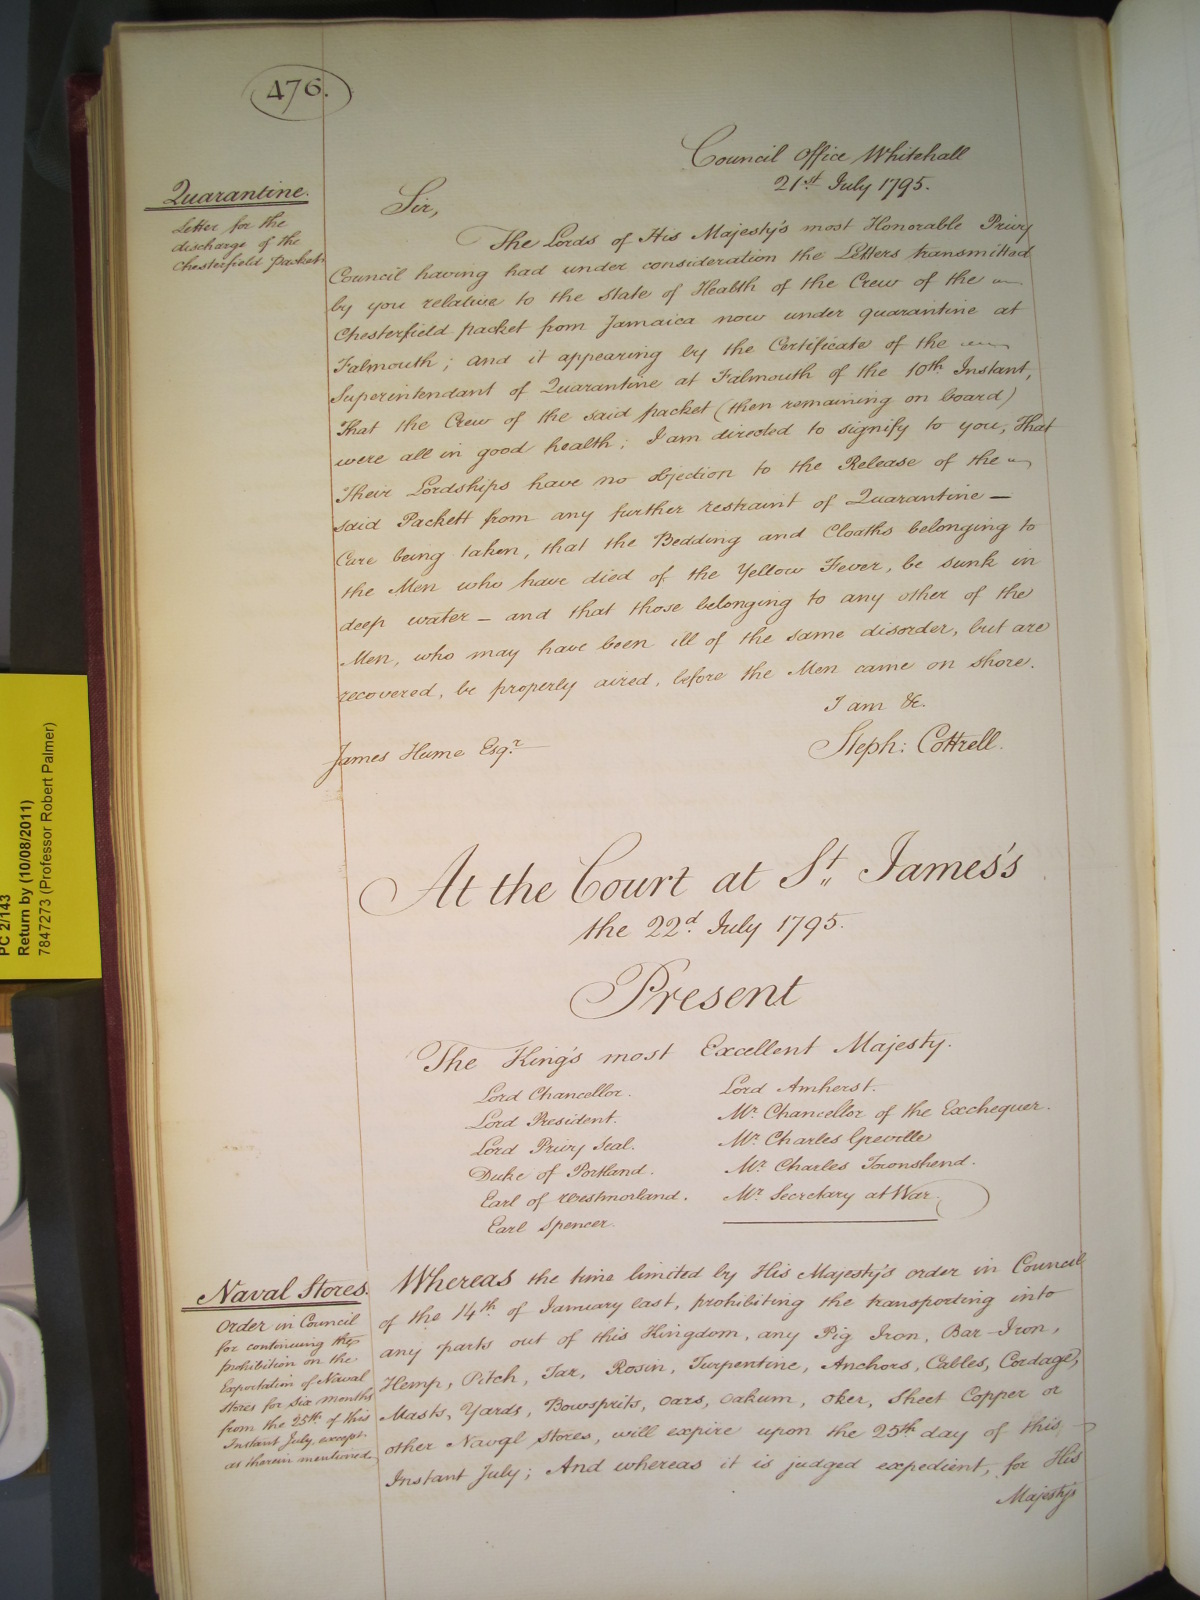 476.
Council Office Whitehall
21st July 1795.
Quarantine.
Letter for the
discharge of the
Chesterfield packet
Sir,
The Lords of His Majesty's most Honorable Privy
Council having had under consideration the Letters transmitted
by you relative to the state of Health of the Crew of the
Chesterfield packet from Jamaica now under quarantine at
Falmouth; and it appearing by the Certificate of the
Superintendant of Quarantine at Falmouth of the 10th Instant,
That the Crew of the said packet (then remaining on board)
were all in good health; I am directed to signify to you, That
Their Lordships have no objection to the Release of the
said Packett from any further restraint of Quarantine —
Care being taken, that the Bedding and Cloaths belonging to
the Men who have died of the Yellow Fever, be sunk in
deep water — and that those belonging to any other of the
Men, who may have been ill of the same disorder, but are
recovered, be properly aired, before the Men came on shore.
I am &c.
Steph: Cottrell.
James Hume Esqr.
At the Court at St. James's
the 22d. July 1795.
Present
The King's most Excellent Majesty.
Lord Chancellor.
Lord President.
Lord Privy Seal.
Duke of Portland.
Earl of Westmorland.
Earl Spencer.
Lord Amherst.
Mr. Chancellor of the Exchequer.
Mr. Charles Greville
Mr. Charles Townshend.
Mr. Secretary at War.
Naval Stores.
Order in Council
for continuing the
prohibition on the
Exportation of Naval
Stores for Six Months
from the 25th of this
Instant July, except
as therein mentioned
Whereas the time limited by His Majesty's order in Council
of the 14th of January last, prohibiting the transporting into
any parts out of this Kingdom, any Pig Iron, Bar-Iron,
Hemp, Pitch, Tar, Rosin, Turpentine, Anchors, Cables, Cordage,
Masts, Yards, Bowsprits, oars, oakum, oker, Sheet Copper or
other Naval Stores, will expire upon the 25th day of this
Instant July; And whereas it is judged expedient, for His
Majesty's
PC 2/143
Return by (10/08/2011)
7847273 (Professor Robert Palmer)